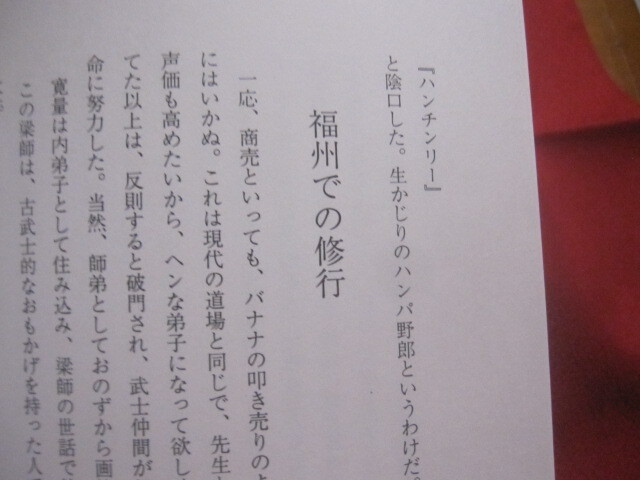 『ハンチンリー』
と陰口した。生かじりのハンパ野郎というわけだ。
福州での修行
一応、商売といっても、バナナの叩き売りのよ
にはいかぬ。これは現代の道場と同じで、先生
声価も高めたいから、ヘンな弟子になって欲し
てた以上は、反則すると破門され、武士仲間が
命に努力した。当然、師弟としておのずから画
寛量は内弟子として住み込み、梁師の世話で
この梁師は、古武士的なおもかげを持った人で